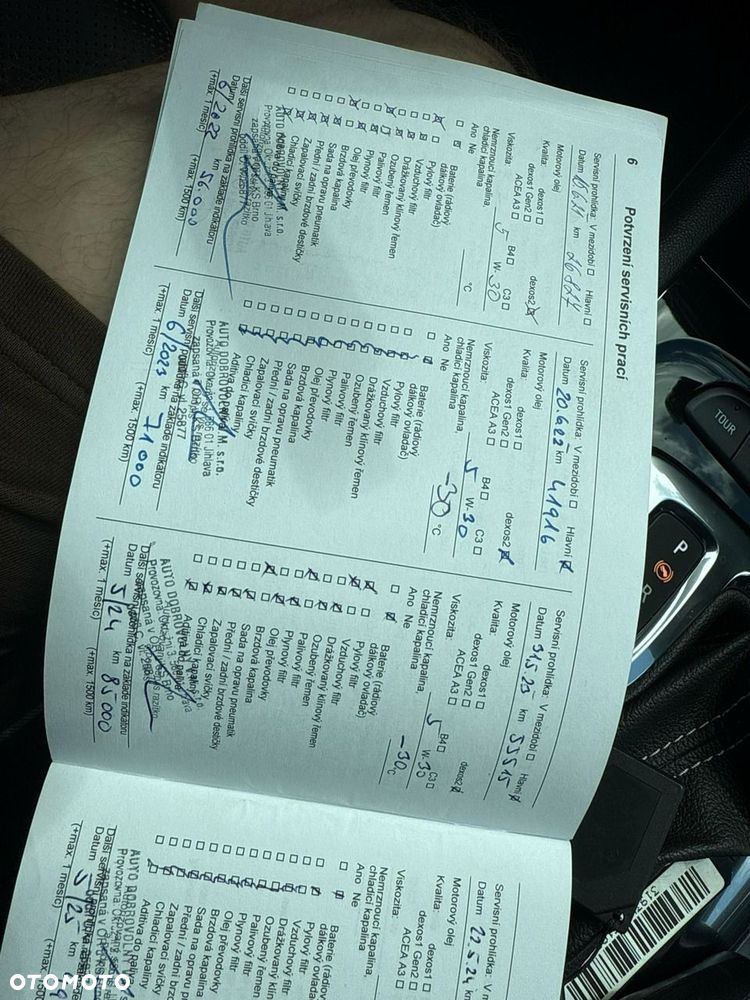 6
Potvrzení servisních prací
Servisní prohlídka: V mezidobí Hlavní
Datum km 26827
Motorový olej
Kvalita: dexos1 dexos2
dexos1 Gen2
Viskozita ACEA A3 B4 C3
5 W- 30
Nemrznoucí kapalina,
chladicí kapalina °C
Ano Ne
Baterie (rádiový
dálkový ovladač)
Pylový filtr
Vzduchový filtr
Drážkovaný klínový řemen
Ozubený řemen
Palivový filtr
Plynový filtr
Olej převodovky
Brzdová kapalina
Sada na opravu pneumatik
Přední / zadní brzdové destičky
Zapalovací svíčky
Chladicí kapaliny
AUTO DOBROVOLNÝ M. s.r.o.
Další servisní prohlídka na základě indikátoru
Datum 6/2022 km 56000
(+max. 1 měsíc) (+max. 1500 km)
Servisní prohlídka: V mezidobí Hlavní
Datum 20.6.22 km 41916
Motorový olej
Kvalita: dexos1 dexos2
dexos1 Gen2
Viskozita: ACEA A3 B4 C3
5 W- 30
Nemrznoucí kapalina,
chladicí kapalina -30 °C
Ano Ne
Baterie (rádiový
dálkový ovladač)
Pylový filtr
Vzduchový filtr
Drážkovaný klínový řemen
Ozubený řemen
Palivový filtr
Plynový filtr
Olej převodovky
Brzdová kapalina
Sada na opravu pneumatik
Přední / zadní brzdové destičky
Zapalovací svíčky
Chladicí kapaliny
Aditiva do paliva
AUTO DOBROVOLNÝ M. s.r.o.
Datum 6/2023 km 71000
(+max. 1 měsíc) (+max. 1500 km)
Servisní prohlídka: V mezidobí Hlavní
Datum 31.5.23 km 53515
Motorový olej
Kvalita: dexos1 dexos2
dexos1 Gen2
Viskozita: ACEA A3 B4 C3
5 W- 30
Nemrznoucí kapalina,
chladicí kapalina -30 °C
Ano Ne
Baterie (rádiový
dálkový ovladač)
Pylový filtr
Vzduchový filtr
Drážkovaný klínový řemen
Ozubený řemen
Palivový filtr
Plynový filtr
Olej převodovky
Brzdová kapalina
Sada na opravu pneumatik
Přední / zadní brzdové destičky
Zapalovací svíčky
Chladicí kapaliny
AUTO DOBROVOLNÝ
Datum 5/24 km 85000
(+max. 1 měsíc) (+max. 1500 km)
Servisní prohlídka:
Datum 22.5.24 km
Motorový olej
Kvalita: dexos1
dexos1 Gen2
Viskozita: ACEA A3
Nemrznoucí kapalina,
chladicí kapalina
Ano Ne
Baterie (rádiový
dálkový ovladač)
Pylový filtr
Vzduchový filtr
Drážkovaný klínový
Ozubený řemen
Palivový filtr
Plynový filtr
Olej převodovky
Brzdová kapalina
Sada na opravu
Přední / zadní
Zapalovací
Chladicí kapaliny
Aditiva do
AUTO DOBROVOLNÝ
Datum 5/25 km
(+max. 1 měsíc) (+max.
TOUR
P
R
OTOMOTO